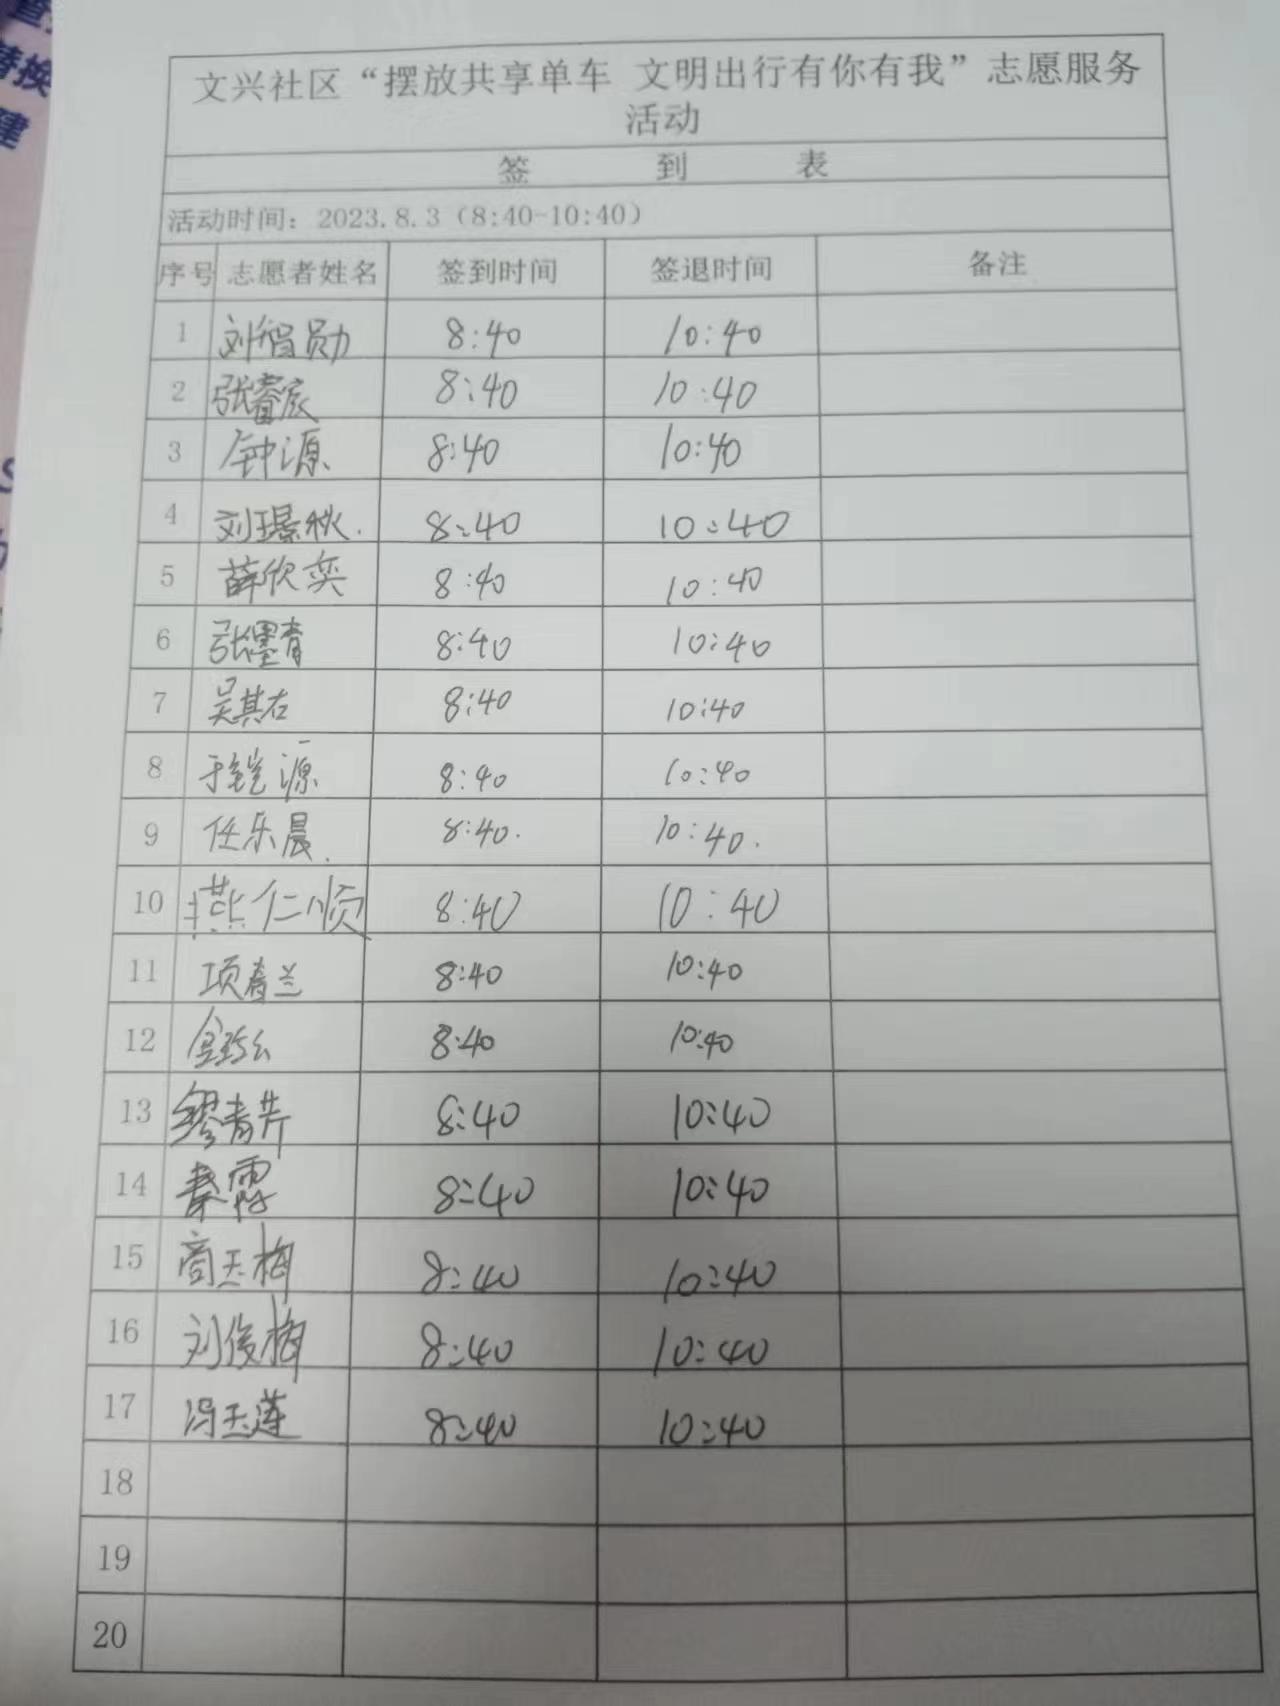 替换
建
文兴社区“摆放共享单车 文明出行有你有我”志愿服务
活动
签 到 表
活动时间：2023.8.3（8:40-10:40）
序号 志愿者姓名 签到时间 签退时间 备注
1 刘智勋 8:40 10:40
2 张睿宸 8:40 10:40
3 钟源 8:40 10:40
4 刘璟秋. 8:40 10:40
5 薛欣奕 8:40 10:40
6 张墨青 8:40 10:40
7 吴其右 8:40 10:40
8 于铠源 8:40 10:40
9 任乐晨. 8:40. 10:40.
10 燕仁顺 8:40 10:40
11 项春兰 8:40 10:40
12 8:40 10:40
13 缪青芹 8:40 10:40
14 秦霞 8:40 10:40
15 商玉梅 8:40 10:40
16 刘俊梅 8:40 10:40
17 冯玉莲 8:40 10:40
18
19
20